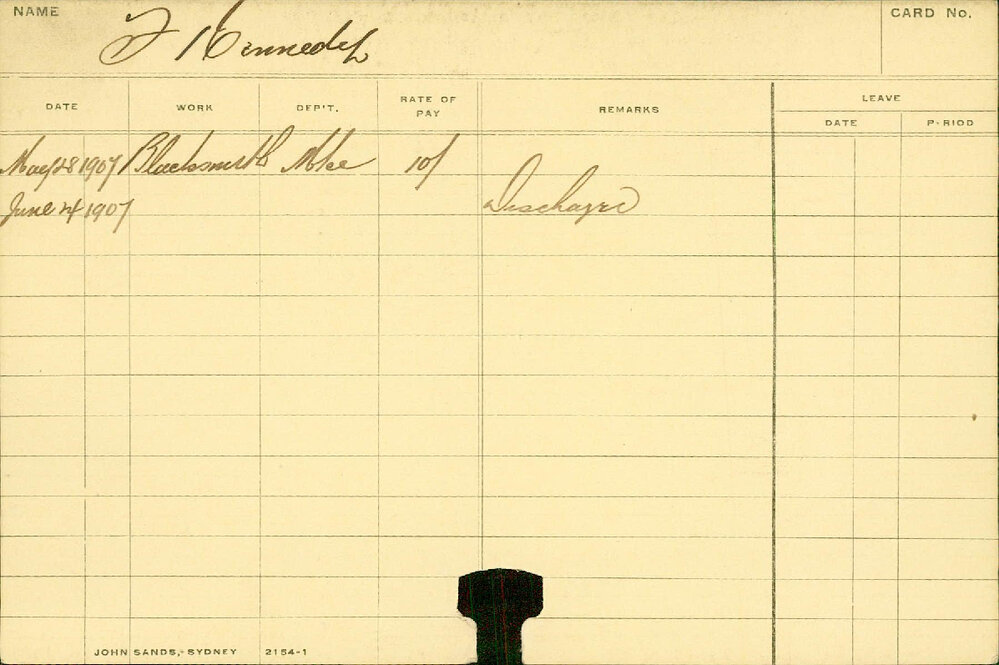 NAME CARD No.
F Kennedy
DATE WORK DEP'T. RATE OF PAY REMARKS LEAVE
DATE P-RIOD
May 28 1907 Blacksmith Mtce 10/
June 4 1907 Discharged
JOHN SANDS,-SYDNEY 2154-1